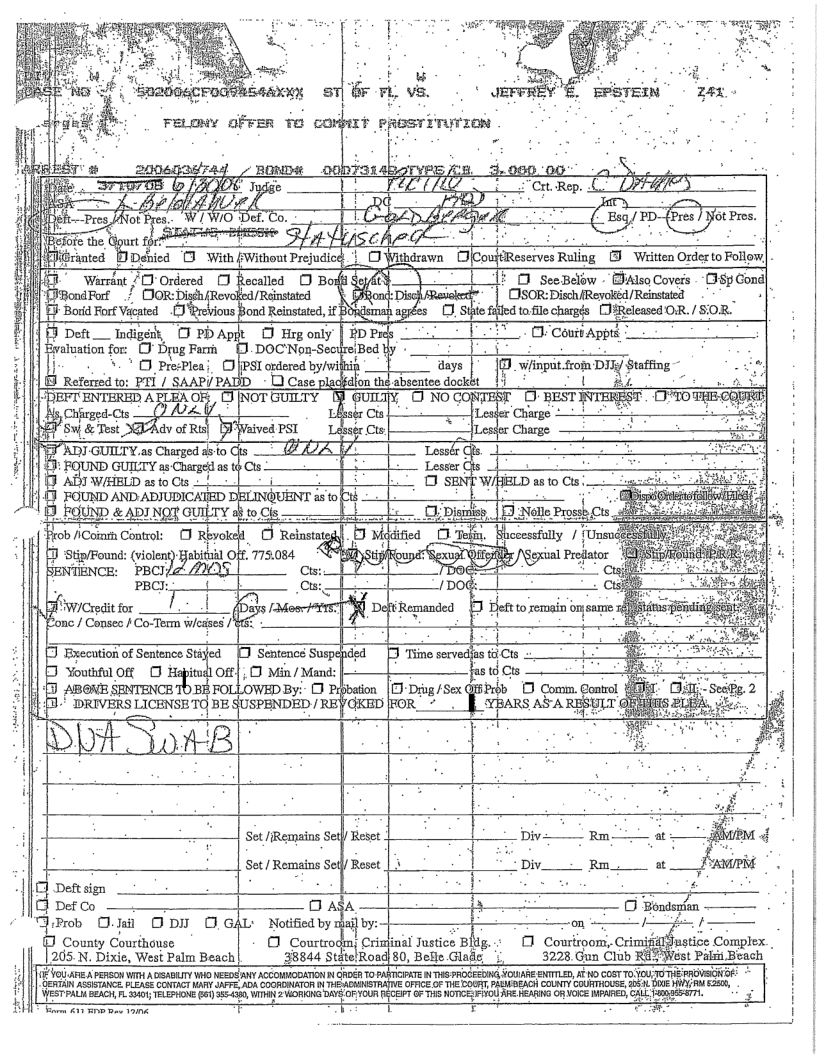 CASE NO 502006CF009454AXXX ST OF FL VS. JEFFREY E. EPSTEIN Z41
FELONY OFFER TO COMMIT PROSTITUTION
ARREST # 2006036744 BOND# TYPE/CB 3,000.00
Date Judge Crt. Rep.
ASA DC Int
Deft Pres / Not Pres. W / W/O Def. Co. GOLDBERGER Esq / PD - Pres / Not Pres.
Before the Court for: STATUS CHECK
☐ Granted ☐ Denied ☐ With / Without Prejudice ☐ Withdrawn ☐ Court Reserves Ruling ☐ Written Order to Follow
☐ Warrant ☐ Ordered ☐ Recalled ☐ Bond Set at $ ☐ See Below ☐ Also Covers ☐ Sp Cond
☐ Bond Forf ☐ OR: Disch / Revoked / Reinstated ☐ Bond: Disch / Revoked ☐ SOR: Disch / Revoked / Reinstated
☐ Bond Forf Vacated ☐ Previous Bond Reinstated, if Bondsman agrees ☐ State failed to file charges ☐ Released O.R. / S.O.R.
☐ Deft Indigent ☐ PD Appt ☐ Hrg only PD Pres ☐ Court Appts
Evaluation for: ☐ Drug Farm ☐ DOC Non-Secure Bed by
☐ Pre-Plea ☐ PSI ordered by/within days ☐ w/input from DJJ / Staffing
☐ Referred to: PTI / SAAP / PADD ☐ Case placed on the absentee docket
DEFT ENTERED A PLEA OF: ☐ NOT GUILTY ☒ GUILTY ☐ NO CONTEST ☐ BEST INTEREST ☐ TO THE COURT
As Charged-Cts ONLY Lesser Cts Lesser Charge
☒ Sw & Test ☒ Adv of Rts ☒ Waived PSI Lesser Cts Lesser Charge
☐ ADJ GUILTY as Charged as to Cts ONLY Lesser Cts
☐ FOUND GUILTY as Charged as to Cts Lesser Cts
☐ ADJ W/HELD as to Cts ☐ SENT W/HELD as to Cts
☐ FOUND AND ADJUDICATED DELINQUENT as to Cts ☐ Dispo Order to follow/Filed
☐ FOUND & ADJ NOT GUILTY as to Cts ☐ Dismiss ☐ Nolle Prosse Cts
Prob / Comm Control: ☐ Revoked ☐ Reinstated ☐ Modified ☐ Term. Successfully / Unsuccessfully
☐ Stip/Found: (violent) Habitual Off. 775.084 ☒ Stip/Found: Sexual Offender / Sexual Predator ☐ Stip/Found P.R.R.
SENTENCE: PBCJ: 12 MOS Cts: / DOC: Cts:
PBCJ: Cts: / DOC: Cts:
☒ W/Credit for 1 Days / Mos. / Yrs. ☒ Deft Remanded ☐ Deft to remain on same rel. status pending sent.
Conc / Consec / Co-Term w/cases / cts:
☐ Execution of Sentence Stayed ☐ Sentence Suspended ☐ Time served as to Cts
☐ Youthful Off ☐ Habitual Off ☐ Min / Mand: as to Cts
☐ ABOVE SENTENCE TO BE FOLLOWED By: ☐ Probation ☐ Drug / Sex Off Prob ☐ Comm. Control ☐ I ☐ II - See Pg. 2
☐ DRIVERS LICENSE TO BE SUSPENDED / REVOKED FOR YEARS AS A RESULT OF THIS PLEA
DNA SWAB
Set / Remains Set / Reset Div Rm at AM/PM
Set / Remains Set / Reset Div Rm at AM/PM
☐ Deft sign
☐ Def Co ☐ ASA ☐ Bondsman
☐ Prob ☐ Jail ☐ DJJ ☐ GAL Notified by mail by: on / /
☐ County Courthouse ☐ Courtroom, Criminal Justice Bldg. ☐ Courtroom, Criminal Justice Complex
205 N. Dixie, West Palm Beach 38844 State Road 80, Belle Glade 3228 Gun Club Rd., West Palm Beach
IF YOU ARE A PERSON WITH A DISABILITY WHO NEEDS ANY ACCOMMODATION IN ORDER TO PARTICIPATE IN THIS PROCEEDING, YOU ARE ENTITLED, AT NO COST TO YOU, TO THE PROVISION OF
CERTAIN ASSISTANCE. PLEASE CONTACT MARY JAFFE, ADA COORDINATOR IN THE ADMINISTRATIVE OFFICE OF THE COURT, PALM BEACH COUNTY COURTHOUSE, 205 N. DIXIE HWY, RM 5.2500,
WEST PALM BEACH, FL 33401; TELEPHONE (561) 355-4380, WITHIN 2 WORKING DAYS OF YOUR RECEIPT OF THIS NOTICE; IF YOU ARE HEARING OR VOICE IMPAIRED, CALL 1-800-955-8771.
Form 611 FDP Rev 12/06